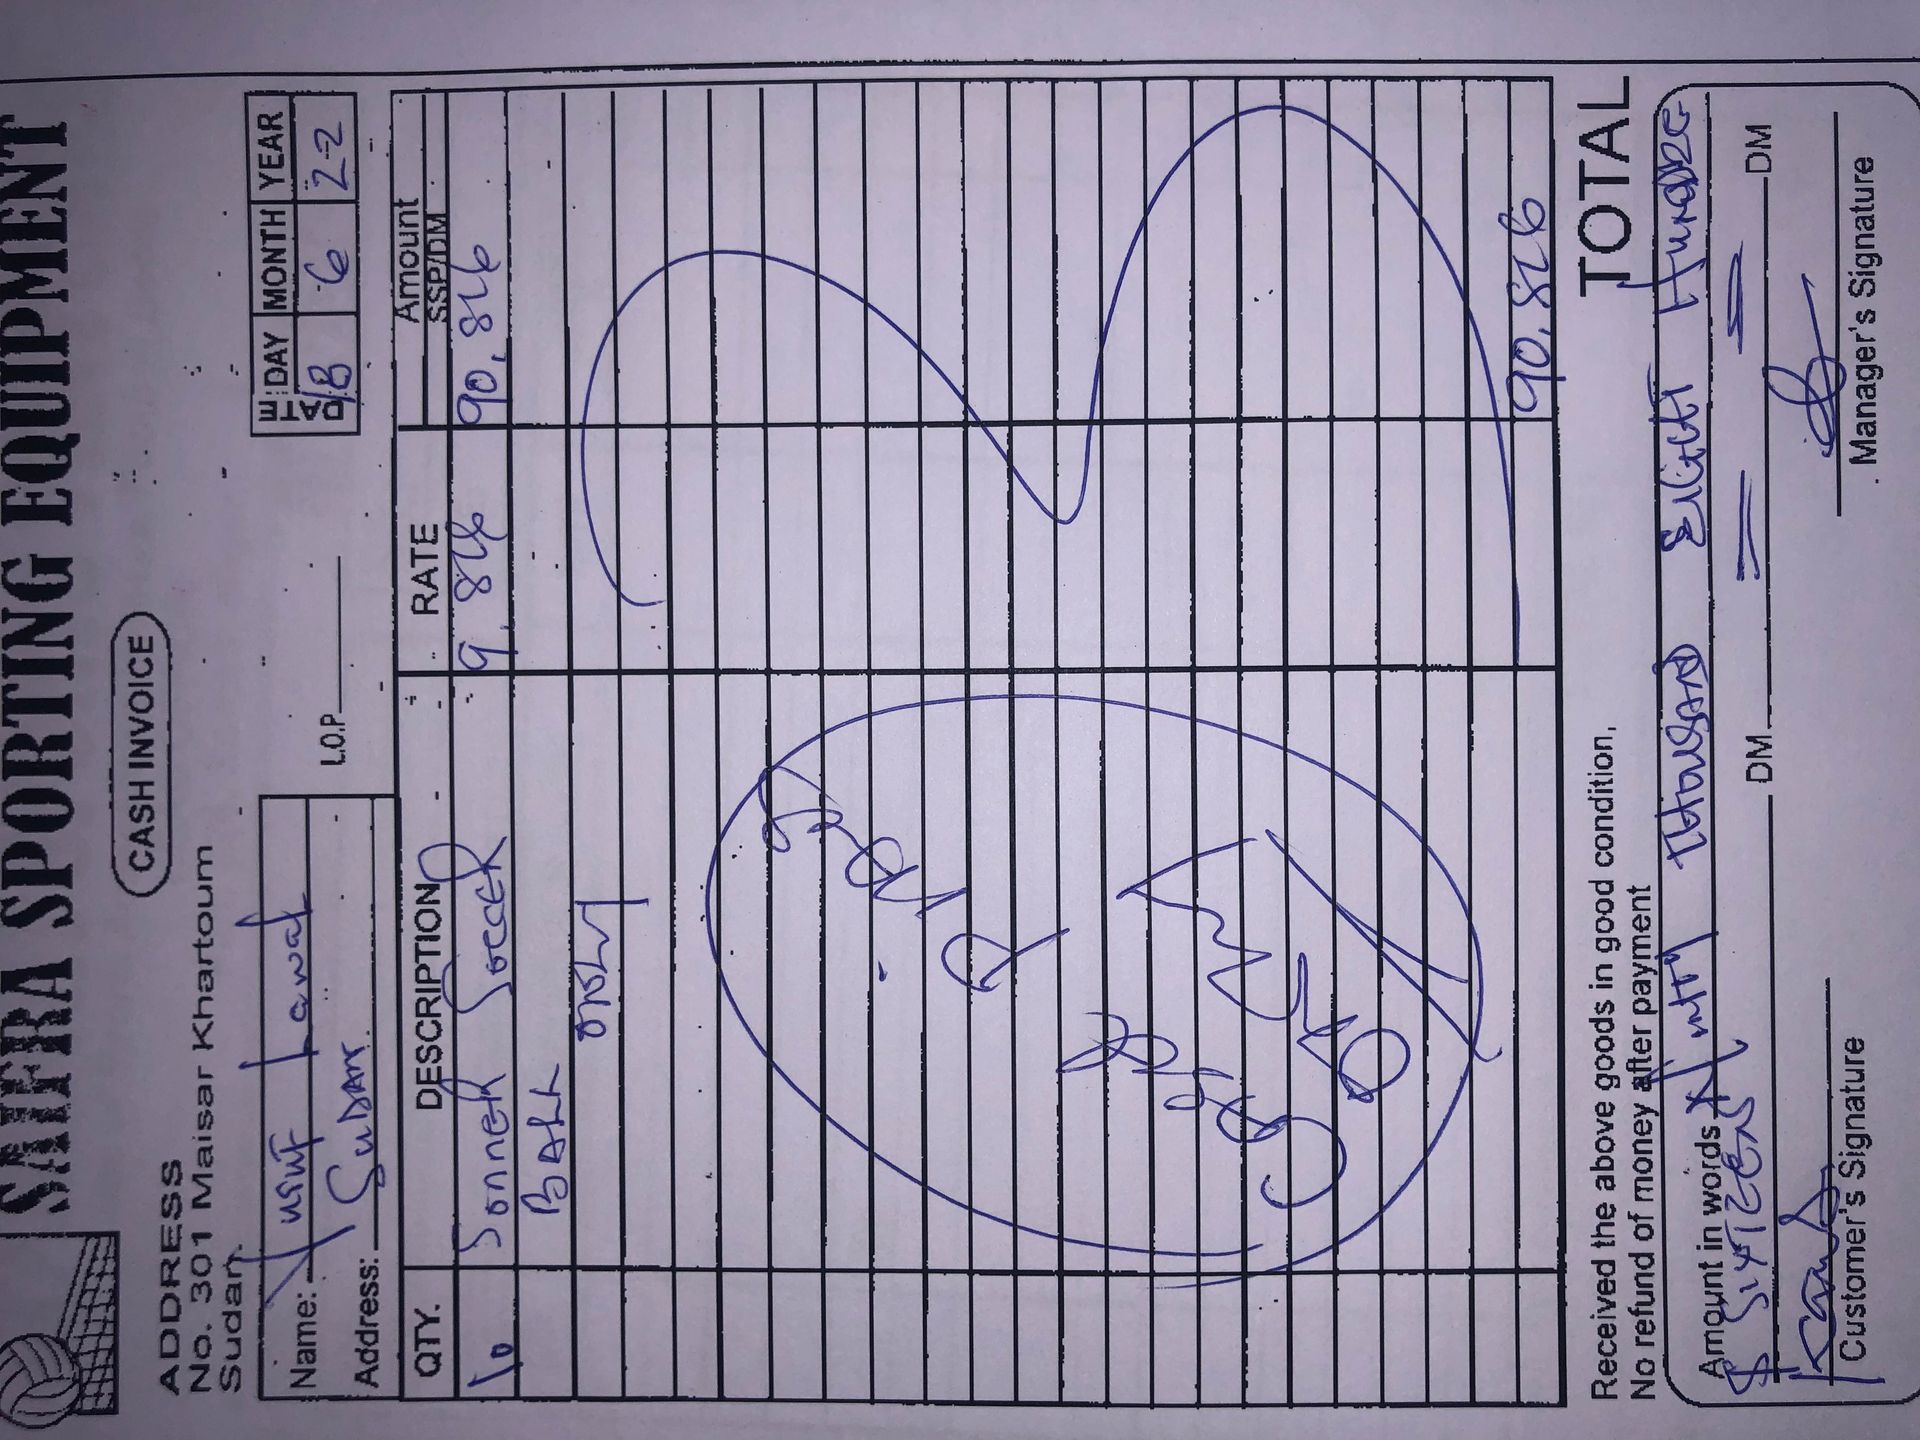 SAHRA SPORTING EQUIPMENT
CASH INVOICE
ADDRESS
No. 301 Maisar Khartoum
Sudan
DATE: DAY MONTH YEAR
18 6 22
Name: Yusuf Lawal
L.O.P
Address: Sudan
QTY. DESCRIPTION RATE Amount
SSP/DM
10 SOCCER 9,816 90,816
BALL
ONLY
Goods
90,816
Received the above goods in good condition,
No refund of money after payment
TOTAL
Amount in words Ninty Thousand Eight Hundre
& SixTEEN DM DM
Customer's Signature
Manager's Signature